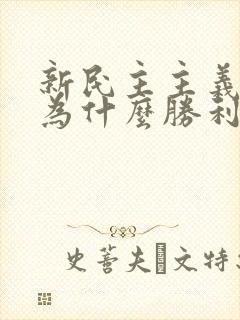 新民主主義
為什麼勝利
史蒼夫文特